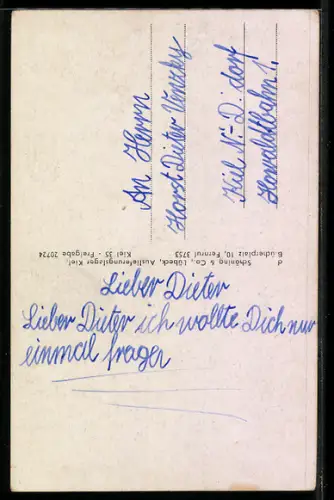 An Herrn
Horst Dieter Venzky
Kiel N.-D: dorf
Howaldtbahn 1.
d
Schöning & Co., Lübeck, Auslieferungslager Kiel,
Blücherplatz 10, Fernruf 3753 Kiel 35 - Freigabe 20724
Lieber Dieter
Lieber Dieter ich wollte Dich nur
einmal fragen